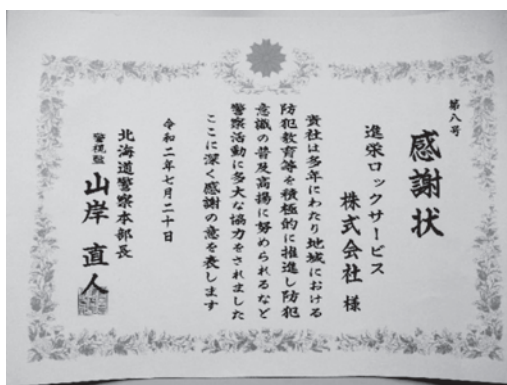 第八号
感謝状
進栄ロックサービス
株式会社 様
貴社は多年にわたり地域における
防犯教育等を積極的に推進し防犯
意識の普及高揚に努められるなど
警察活動に多大な協力をされました
ここに深く感謝の意を表します
令和二年七月二十日
北海道警察本部長
警視監 山岸 直人